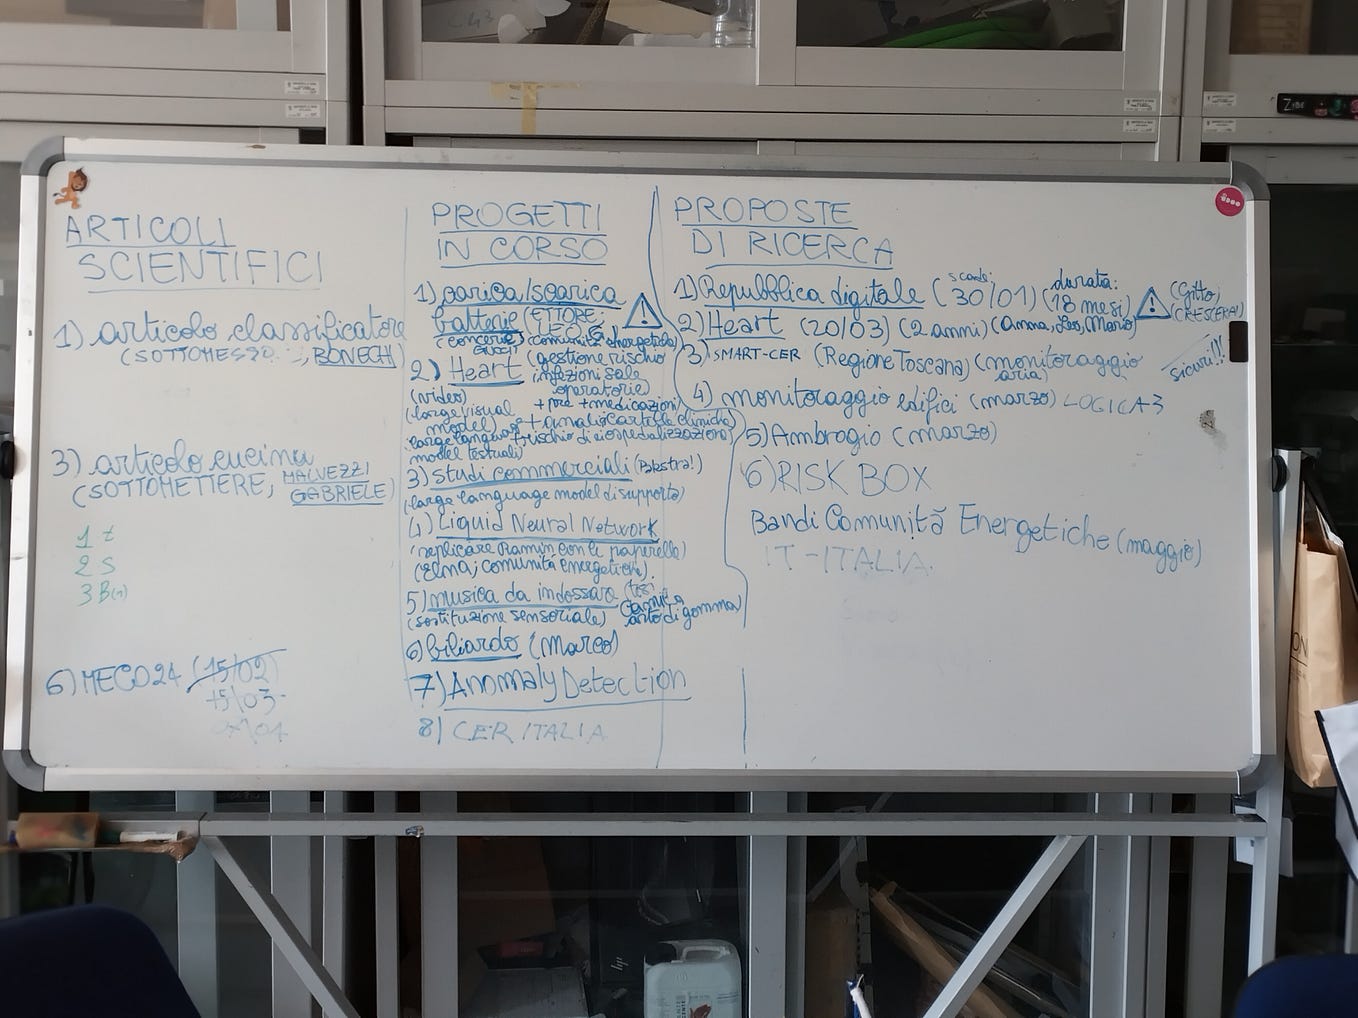 ARTICOLI
SCIENTIFICI
1) articolo classificatore
(SOTTOMESSO, BONECHI)
3) articolo cucina
(SOTTOMETTERE, MALVEZZI
GABRIELE)
1 t
2 S
3 B(n)
6) MECO24 (15/02)
15/03
PROGETTI
IN CORSO
1) carica/scarica
batterie (ETTORE,
LEO,
(concerie comunità energetiche)
GUCCI
2) Heart (gestione rischio
infezioni sale
operatorie)
(video) + pre + medicazioni
(large visual
model) + analisi cartelle cliniche
large language + rischio di riospedalizzazione)
model testuali
3) studi commerciali (Palestra!)
(large language model di supporto)
4) Liquid Neural Network
(replicare Ramin con le paperelle)
(Elma, comunità energetiche).
5) musica da indossare (tesi
Camilla
(sostituzione sensoriale) arto di gomma)
6) biliardo (Marco)
7) Anomaly Detection
8) CER ITALIA
PROPOSTE
DI RICERCA
1) Repubblica digitale (scade: 30/01) (durata: 18 mesi) (Gitto,
CRESCERAI)
2) Heart (20/03) (2 anni) (Anna, Leo, Mario)
3) SMART-CER (Regione Toscana) (monitoraggio
aria) sicuri!!!
4) monitoraggio edifici (marzo) LOGICA3
5) Ambrogio (marzo)
6) RISK BOX
Bandi Comunità Energetiche (maggio)
IT-ITALIA